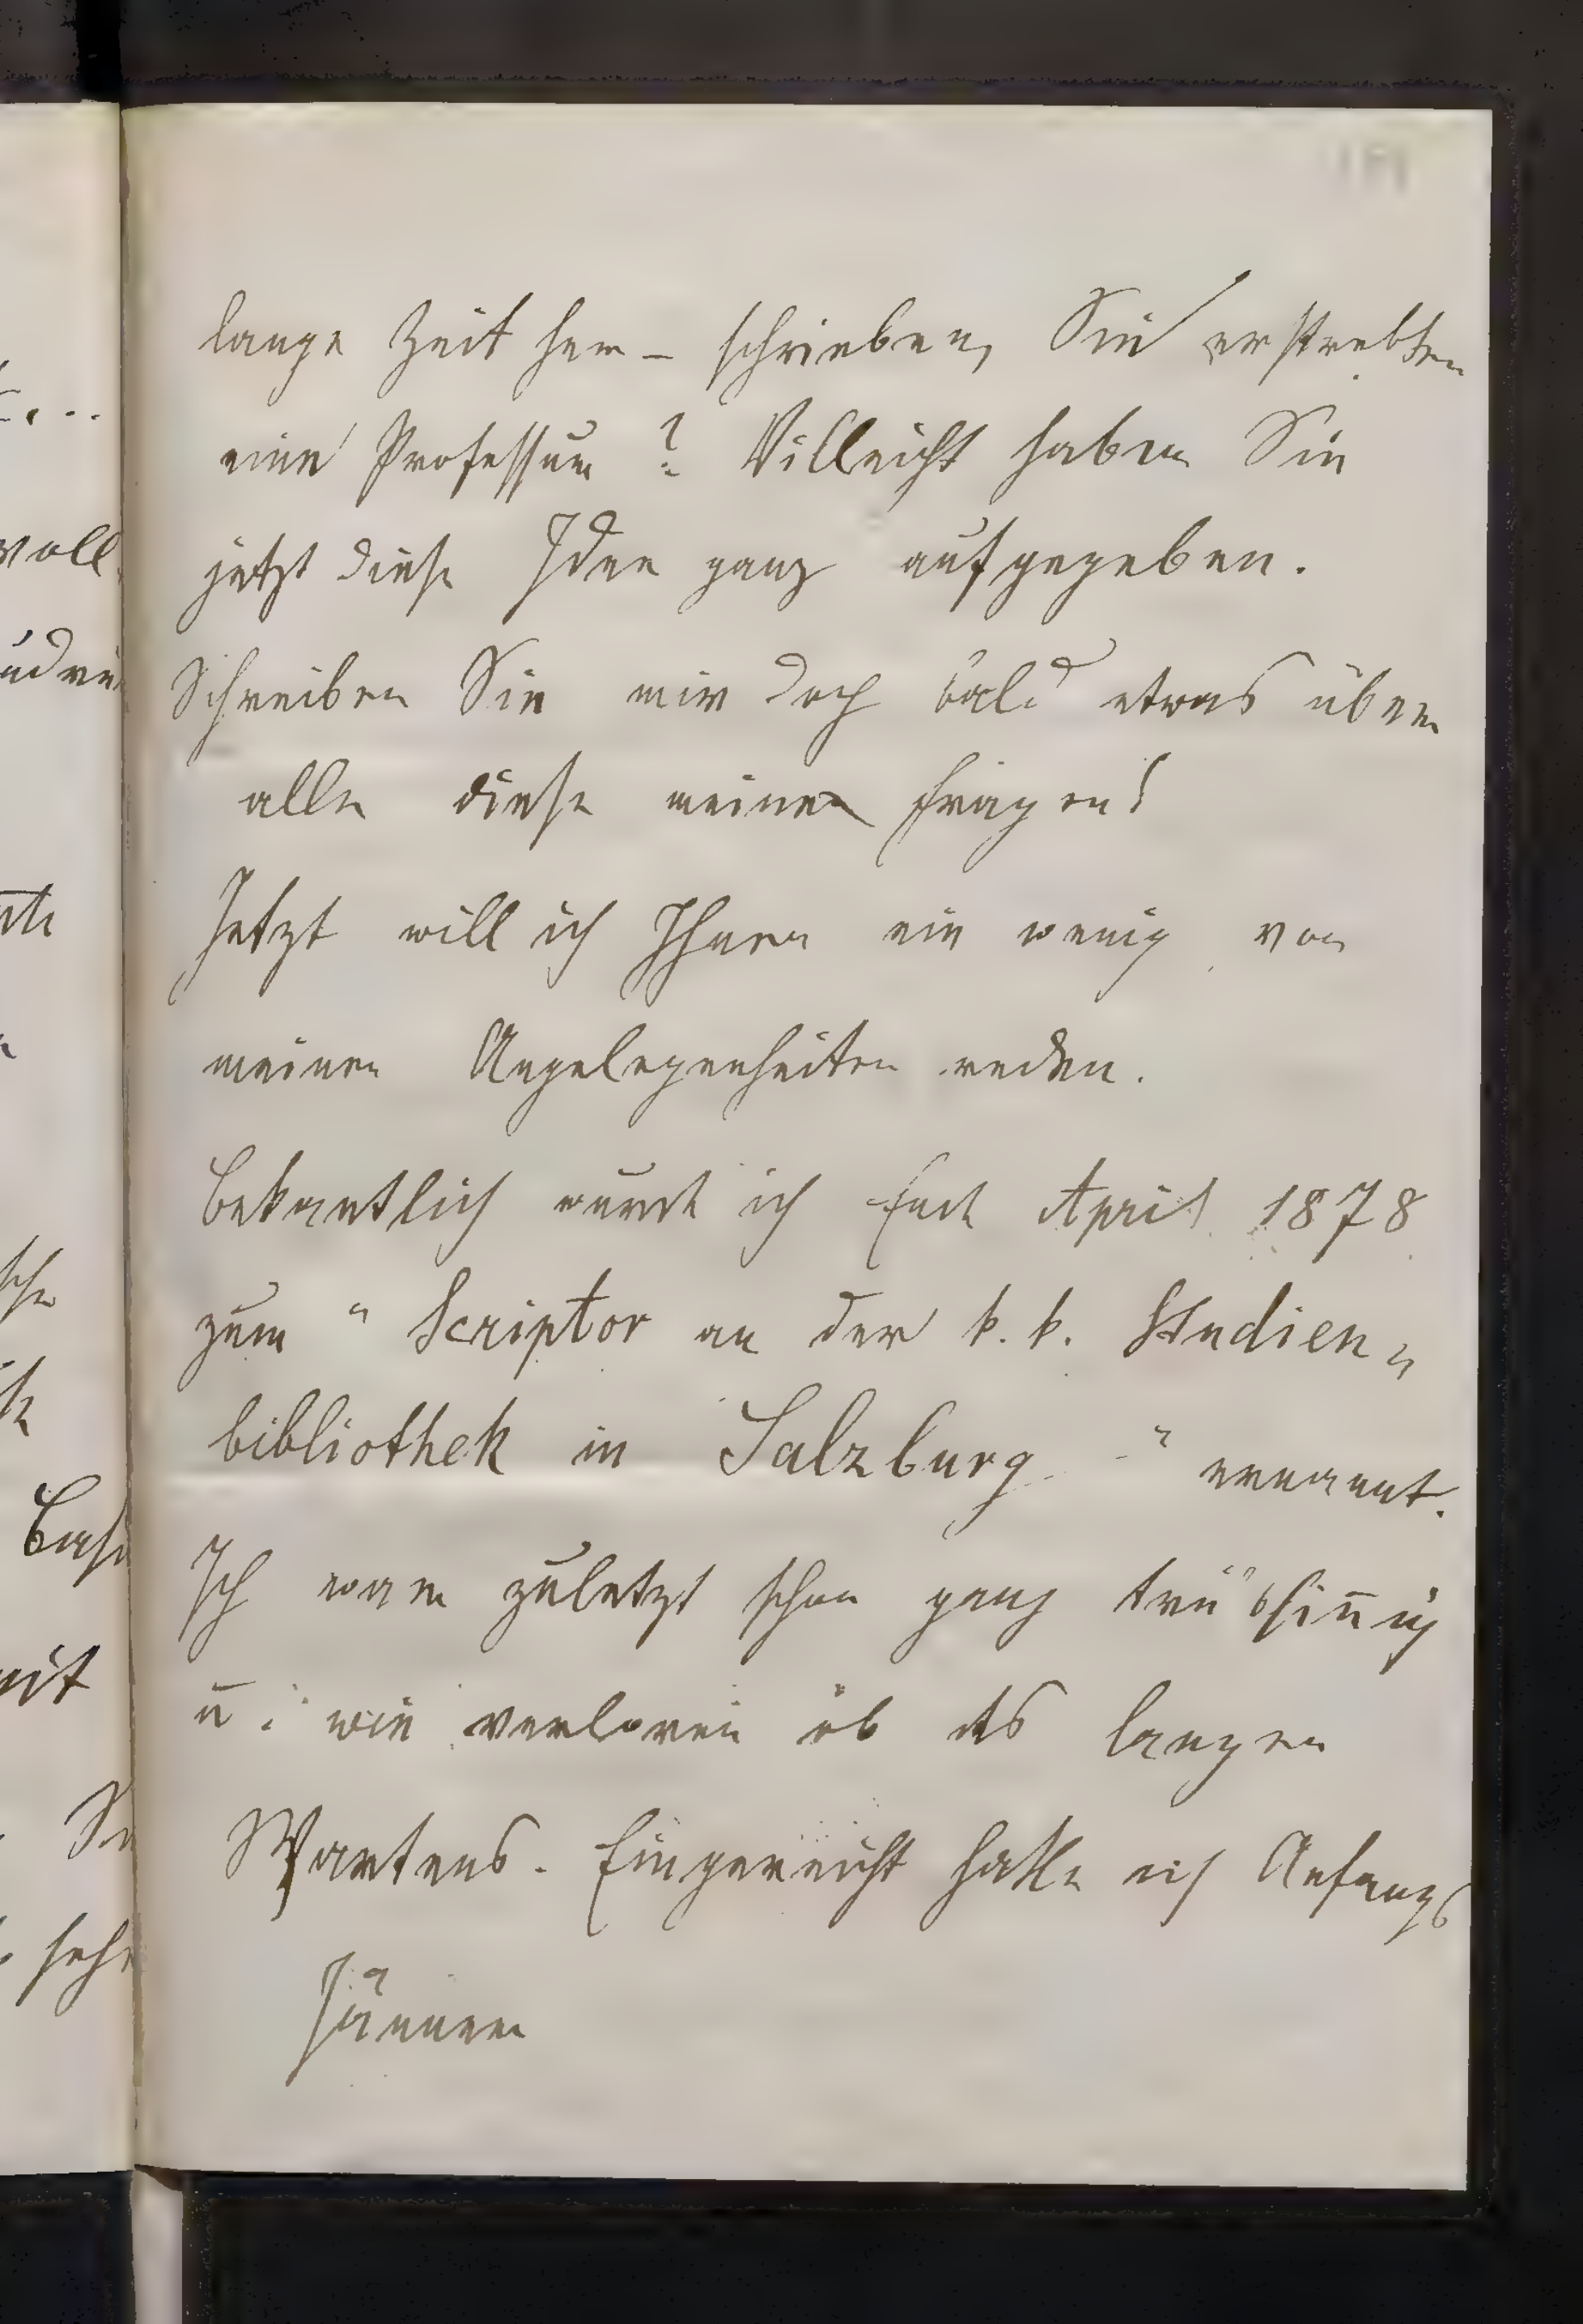 lange Zeit her – schrieben, Sie erstrebten
eine Professur? Villeicht haben Sie
jetzt diese Idee ganz aufgegeben.
Schreiben Sie mir doch bald etwas über
alle diese meine Fragen!
Jetzt will ich Ihnen ein wenig von
meinen Angelegenheiten reden.
Bekantlich wurde ich Ende April 1878
zum "Scriptor an der k. k. Studien„
bibliothek in Salzburg" ernannt.
Ich war zuletzt schon ganz trübsin̄ig
u. wie verloren ob des langen
Wartens. Eingereicht hatte ich Anfangs
Jänner